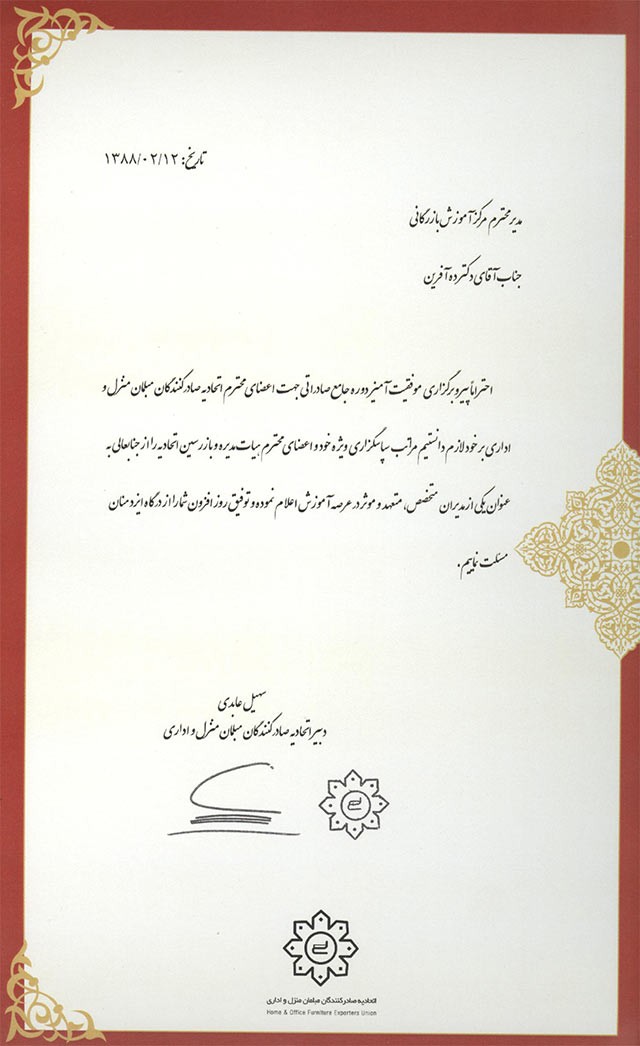 تاریخ: ۱۳۸۸/۰۲/۱۲
مدیر محترم مرکز آموزش بازرگانی
جناب آقای دکتر ده آفرین
احتراماً پیرو برگزاری موفقیت آمیز دوره جامع صادراتی جهت اعضای محترم اتحادیه صادرکنندگان مبلمان منزل و
اداری بر خود لازم دانستیم مراتب سپاسگزاری ویژه خود و اعضای محترم هیات مدیره و بازرسین اتحادیه را از جنابعالی به
عنوان یکی از مدیران متخصص، متعهد و موثر در عرصه آموزش اعلام نموده و توفیق روز افزون شما را از درگاه ایزد منان
مسئلت نماییم.
سهیل عابدی
دبیر اتحادیه صادرکنندگان مبلمان منزل و اداری
اتحادیه صادرکنندگان مبلمان منزل و اداری
Home & Office Furniture Exporters Union